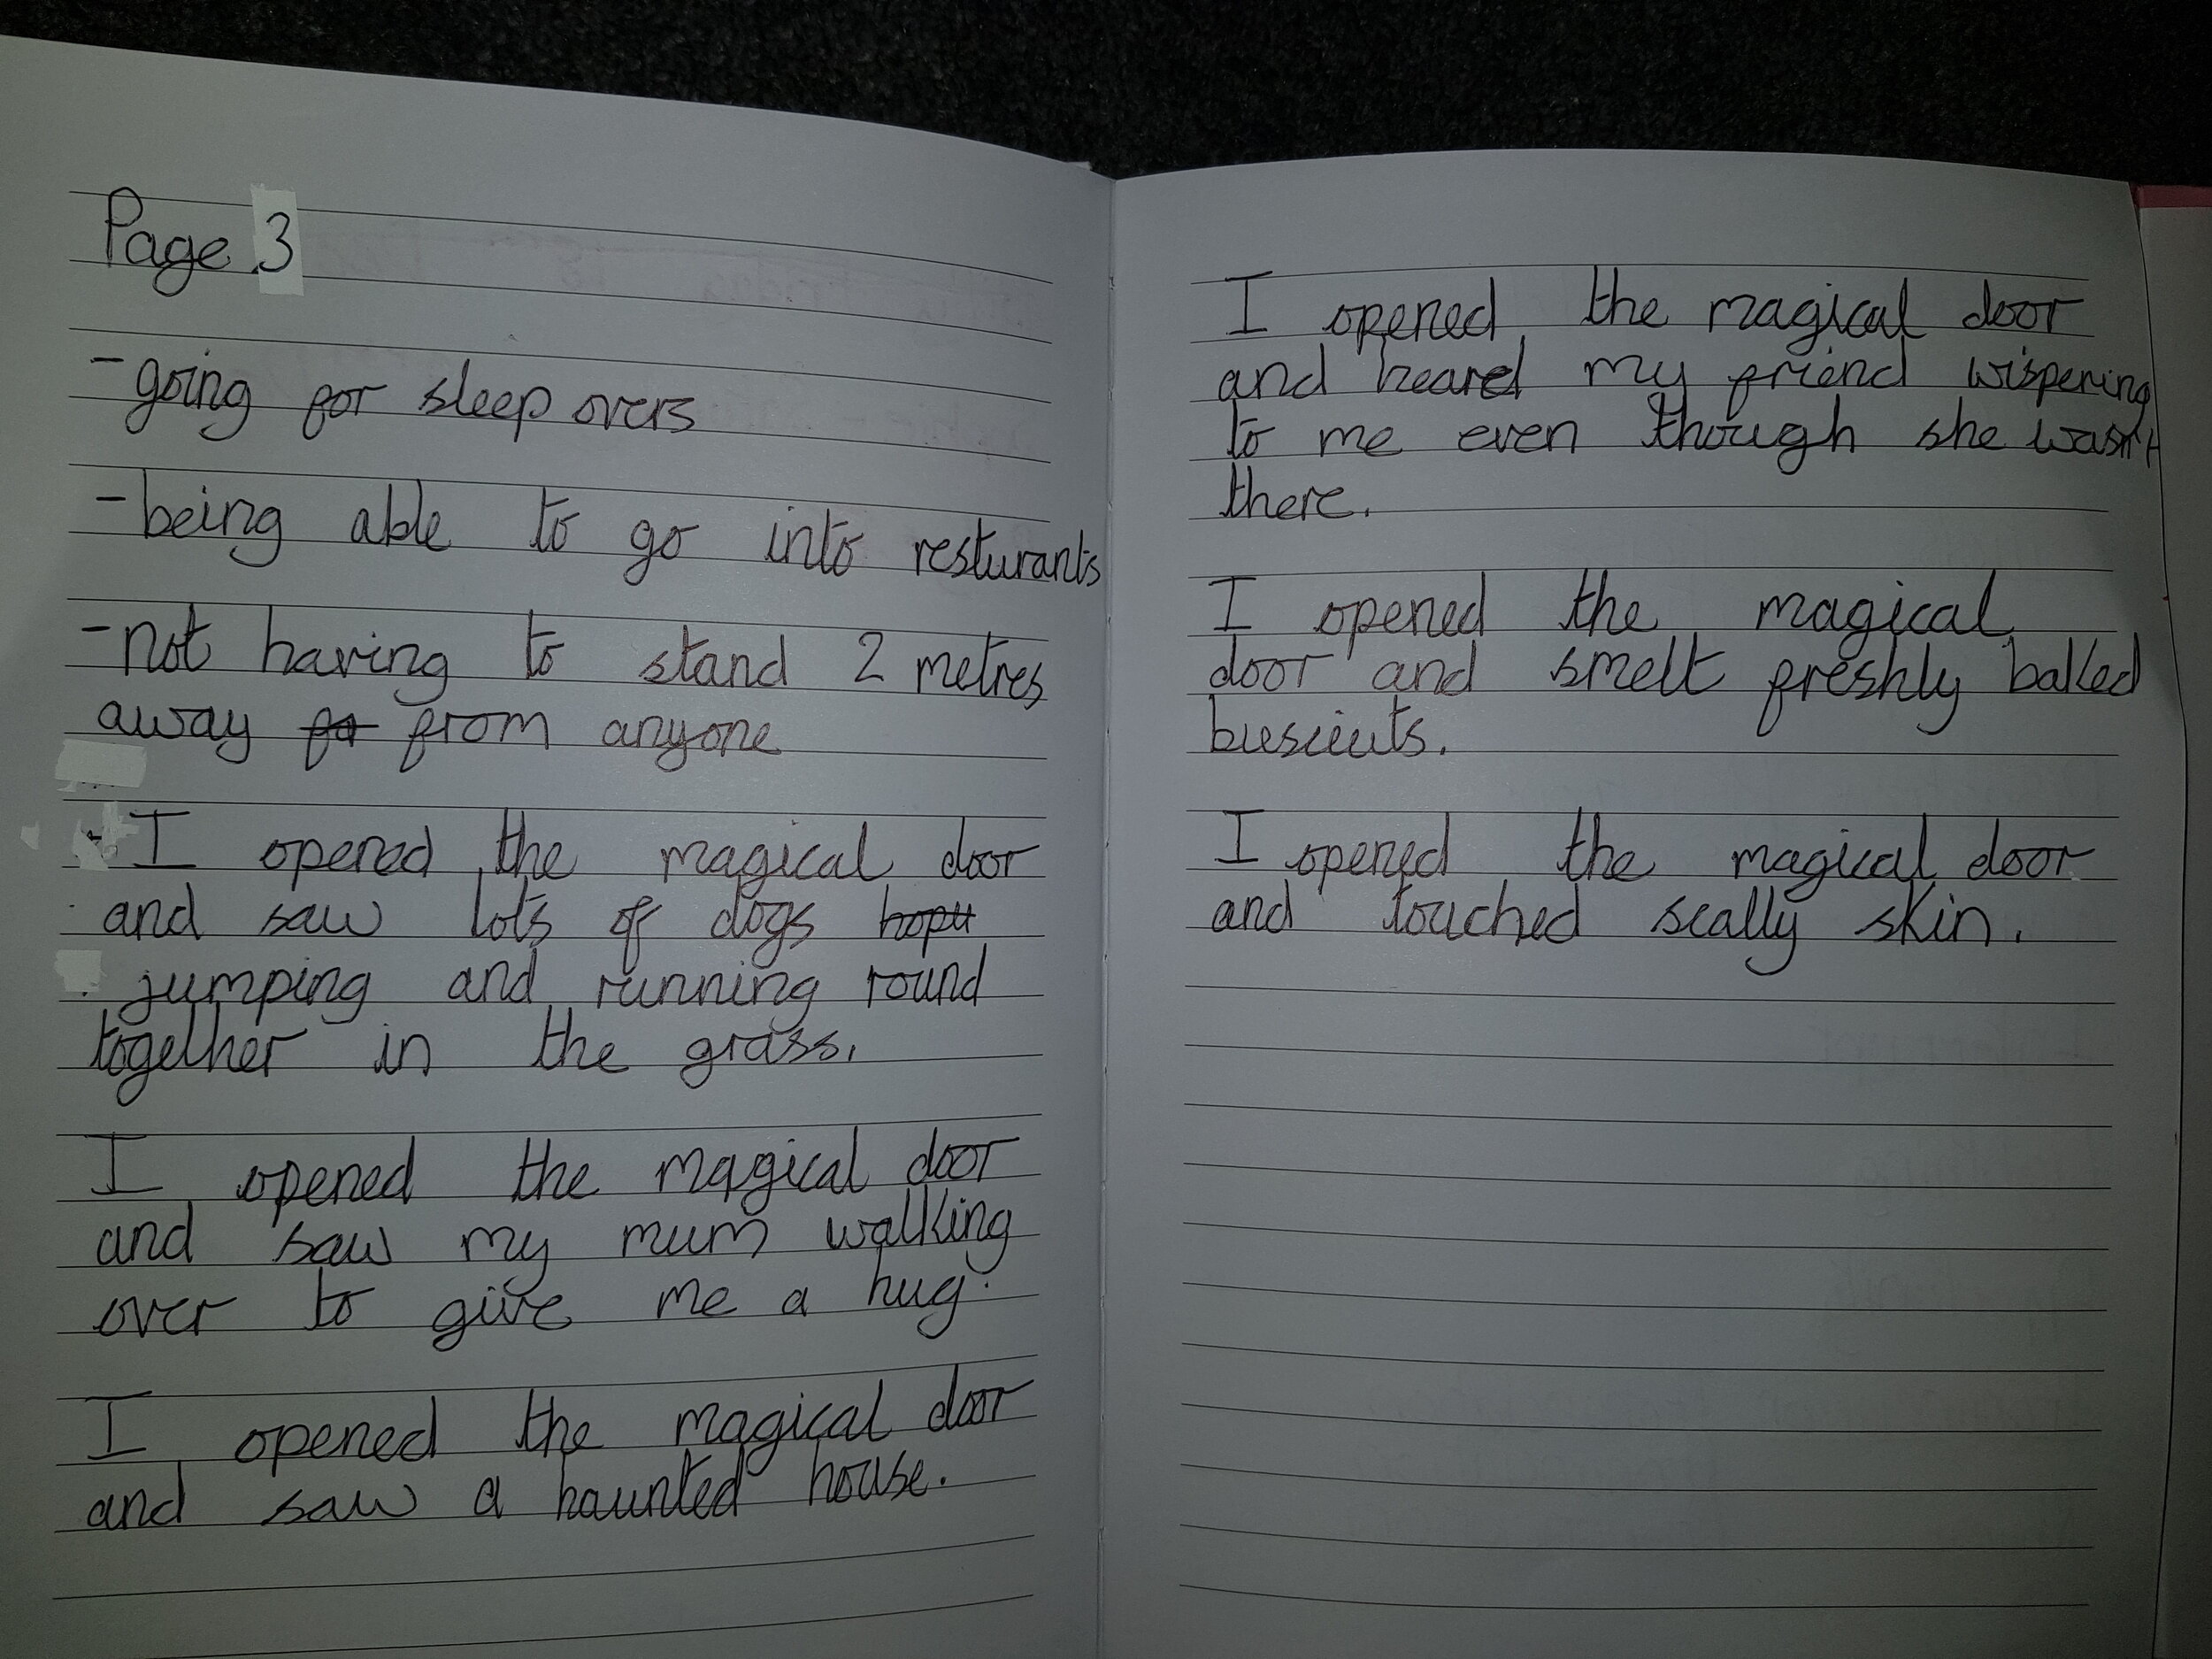 Page 3
- going for sleep overs
- being able to go into resturants
- not having to stand 2 metres
away from anyone
- I opened the magical door
and saw lots of dogs
jumping and running round
together in the grass.
I opened the magical door
and saw my mum walking
over to give me a hug.
I opened the magical door
and saw a haunted house.
I opened the magical door
and heared my friend wispering
to me even though she wasn't
there.
I opened the magical
door and smelt freshly balked
I opened the magical door
and touched scally skin.